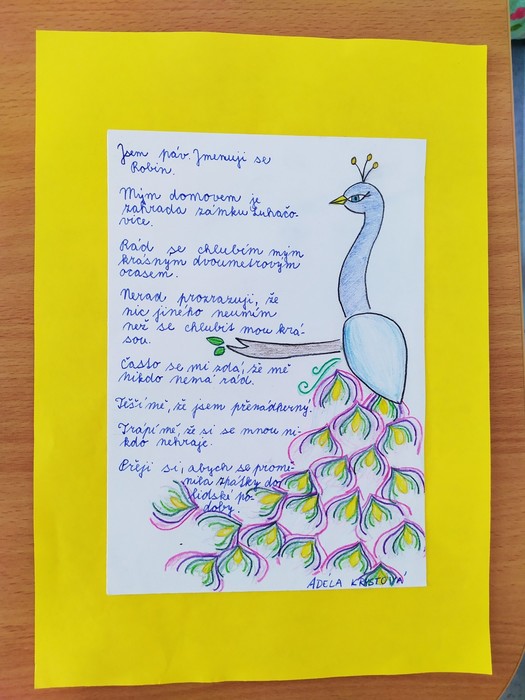 Jsem páv. Jmenuji se
Robin.
Mým domovem je
zahrada zámku Luhačo-
vice.
Rád se chlubím mým
krásným dvoumetrovým
ocasem.
Nerad prozrazuji, že
nic jiného neumím
než se chlubit mou krá-
sou.
Často se mi zdá, že mě
nikdo nemá rád.
Těší mě, že jsem přenádherný.
Trápí mě, že si se mnou ni-
kdo nehraje.
Přeji si, abych se promě-
nila zpátky do
lidské po-
doby.
ADÉLA KRISTOVÁ